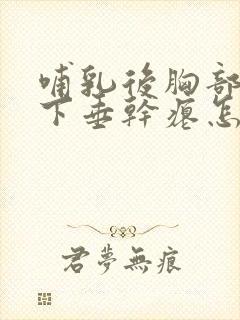 哺乳後胸部
下垂幹癟怎
君夢無痕